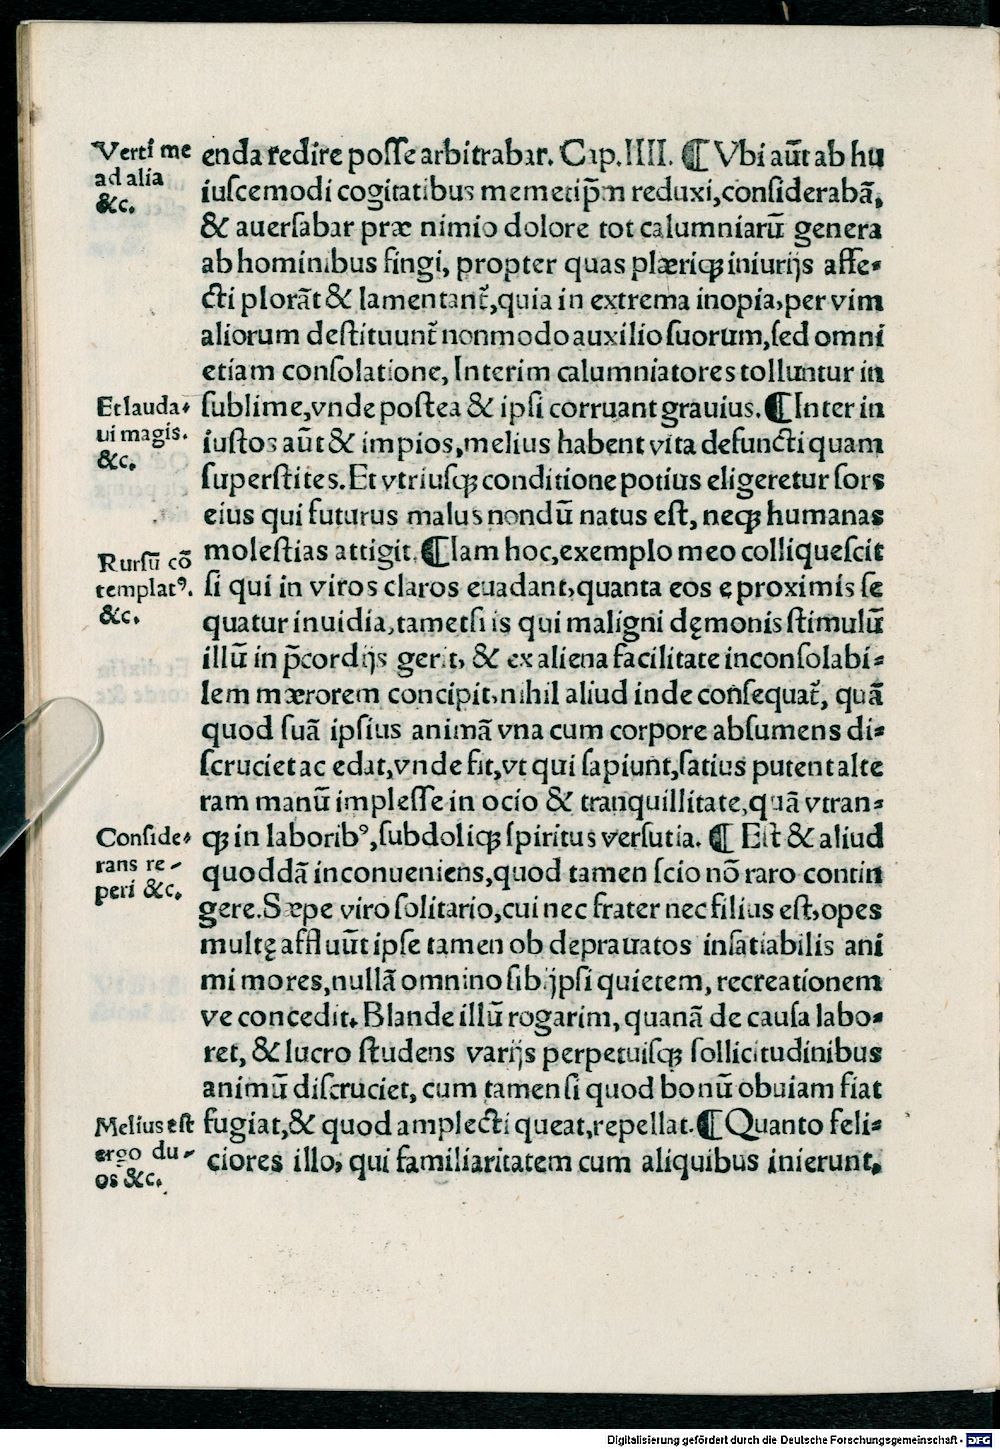 Verti me
ad alia
&c.
enda redire posse arbitrabar. Cap. IIII. ¶ Vbi aūt ab hu
iuscemodi cogitatibus memetip̄m reduxi, considerabā,
& auersabar præ nimio dolore tot calumniarū genera
ab hominibus fingi, propter quas plæriqꝫ iniurijs affe⸗
cti plorāt & lamentant̃, quia in extrema inopia, per vim
aliorum destituunt̃ nonmodo auxilio suorum, sed omni
etiam consolatione, Interim calumniatores tolluntur in
Et lauda⸗
ui magis.
&c.
sublime, vnde postea & ipsi corruant grauius. ¶ Inter in
iustos aūt & impios, melius habent vita defuncti quam
superstites. Et vtriusqꝫ conditione potius eligeretur sors
eius qui futurus malus nondū natus est, neqꝫ humanas
Rursū cō
templatꝰ.
&c.
molestias attigit. ¶ Iam hoc, exemplo meo colliquescit
si qui in viros claros euadant, quanta eos e proximis se
quatur inuidia, tametsi is qui maligni dęmonis stimulū
illū in p̄cordijs gerit, & ex aliena facilitate inconsolabi⸗
lem mærorem concipit, nihil aliud inde consequat̃, quā
quod suā ipsius animā vna cum corpore absumens di⸗
scruciet ac edat, vnde fit, vt qui sapiunt, satius putent alte
ram manū implesse in ocio & tranquillitate, quā vtran⸗
Conside⸗
rans re⸗
peri &c.
qꝫ in laboribꝰ, subdoliqꝫ spiritus versutia. ¶ Est & aliud
quoddā inconueniens, quod tamen scio nō raro contin
gere. Sæpe viro solitario, cui nec frater nec filius est, opes
multę affluūt ipse tamen ob deprauatos insatiabilis ani
mi mores, nullā omnino sibijpsi quietem, recreationem
ve concedit. Blande illū rogarim, quanā de causa labo⸗
ret, & lucro studens varijs perpetuisqꝫ sollicitudinibus
animū discruciet, cum tamen si quod bonū obuiam fiat
Melius est
ergo du⸗
os &c.
fugiat, & quod amplecti queat, repellat. ¶ Quanto feli⸗
ciores illo, qui familiaritatem cum aliquibus inierunt,
Digitalisierung gefördert durch die Deutsche Forschungsgemeinschaft - DFG